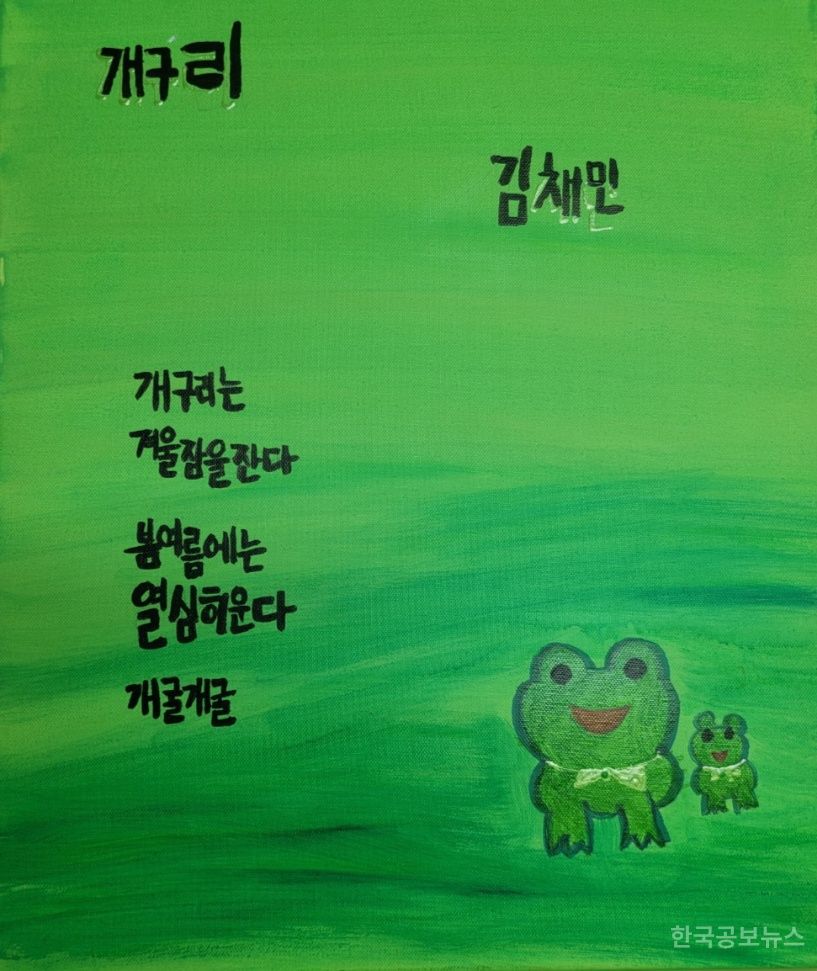 개구리
김채민
개구리는
겨울잠을잔다
봄여름에는
열심히운다
개굴개굴
한국공보뉴스